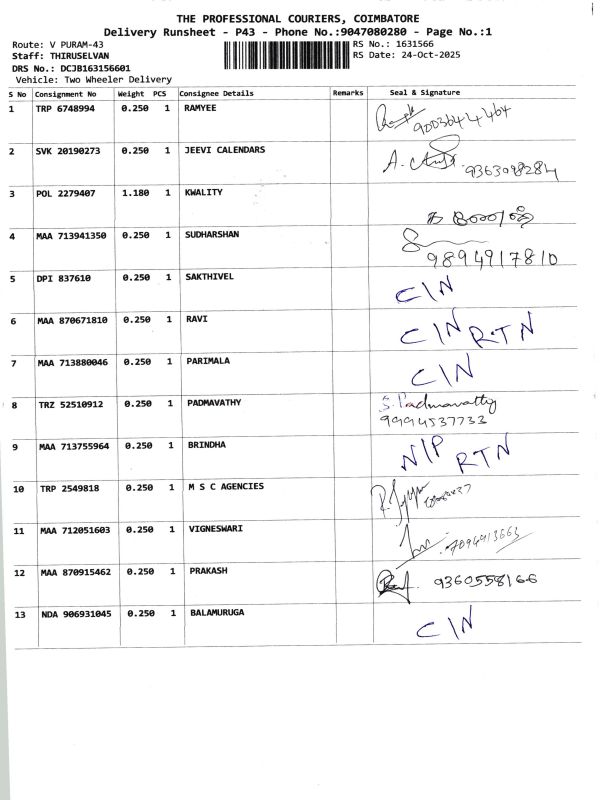 THE PROFESSIONAL COURIERS, COIMBATORE
Delivery Runsheet - P43 - Phone No.:9047080280 - Page No.:1
Route: V PURAM-43 RS No.: 1631566
Staff: THIRUSELVAN RS Date: 24-Oct-2025
DRS No.: DCJB163156601
Vehicle: Two Wheeler Delivery
S No Consignment No Weight PCS Consignee Details Remarks Seal & Signature
1 TRP 6748994 0.250 1 RAMYEE
2 SVK 20190273 0.250 1 JEEVI CALENDARS 9363098284
3 POL 2279407 1.180 1 KWALITY
4 MAA 713941350 0.250 1 SUDHARSHAN 9894917810
5 DPI 837610 0.250 1 SAKTHIVEL C/N
6 MAA 870671810 0.250 1 RAVI C/N RTN
7 MAA 713880046 0.250 1 PARIMALA C/N
8 TRZ 52510912 0.250 1 PADMAVATHY S. Padmavathy
9994537733
9 MAA 713755964 0.250 1 BRINDHA N/P RTN
10 TRP 2549818 0.250 1 M S C AGENCIES
11 MAA 712051603 0.250 1 VIGNESWARI 7094913663
12 MAA 870915462 0.250 1 PRAKASH 9360558166
13 NDA 906931045 0.250 1 BALAMURUGA C/N